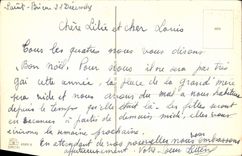 Saint-Brieuc 21 Décembre
Chère Lilie et cher Louis
Tous les quatre nous vous disons
Bon noël! Pour nous il ne sera pas très
gai cette année. la place de la grand'mère
sera vide et nous avons du mal a nous habituer
depuis le temps qu'elle était là. les filles seront
en vacances à partir de demain midi, elles nous
la semaine prochaine.
En attendant de vos nouvelles nous vous embrassons
affectueusement. Votre